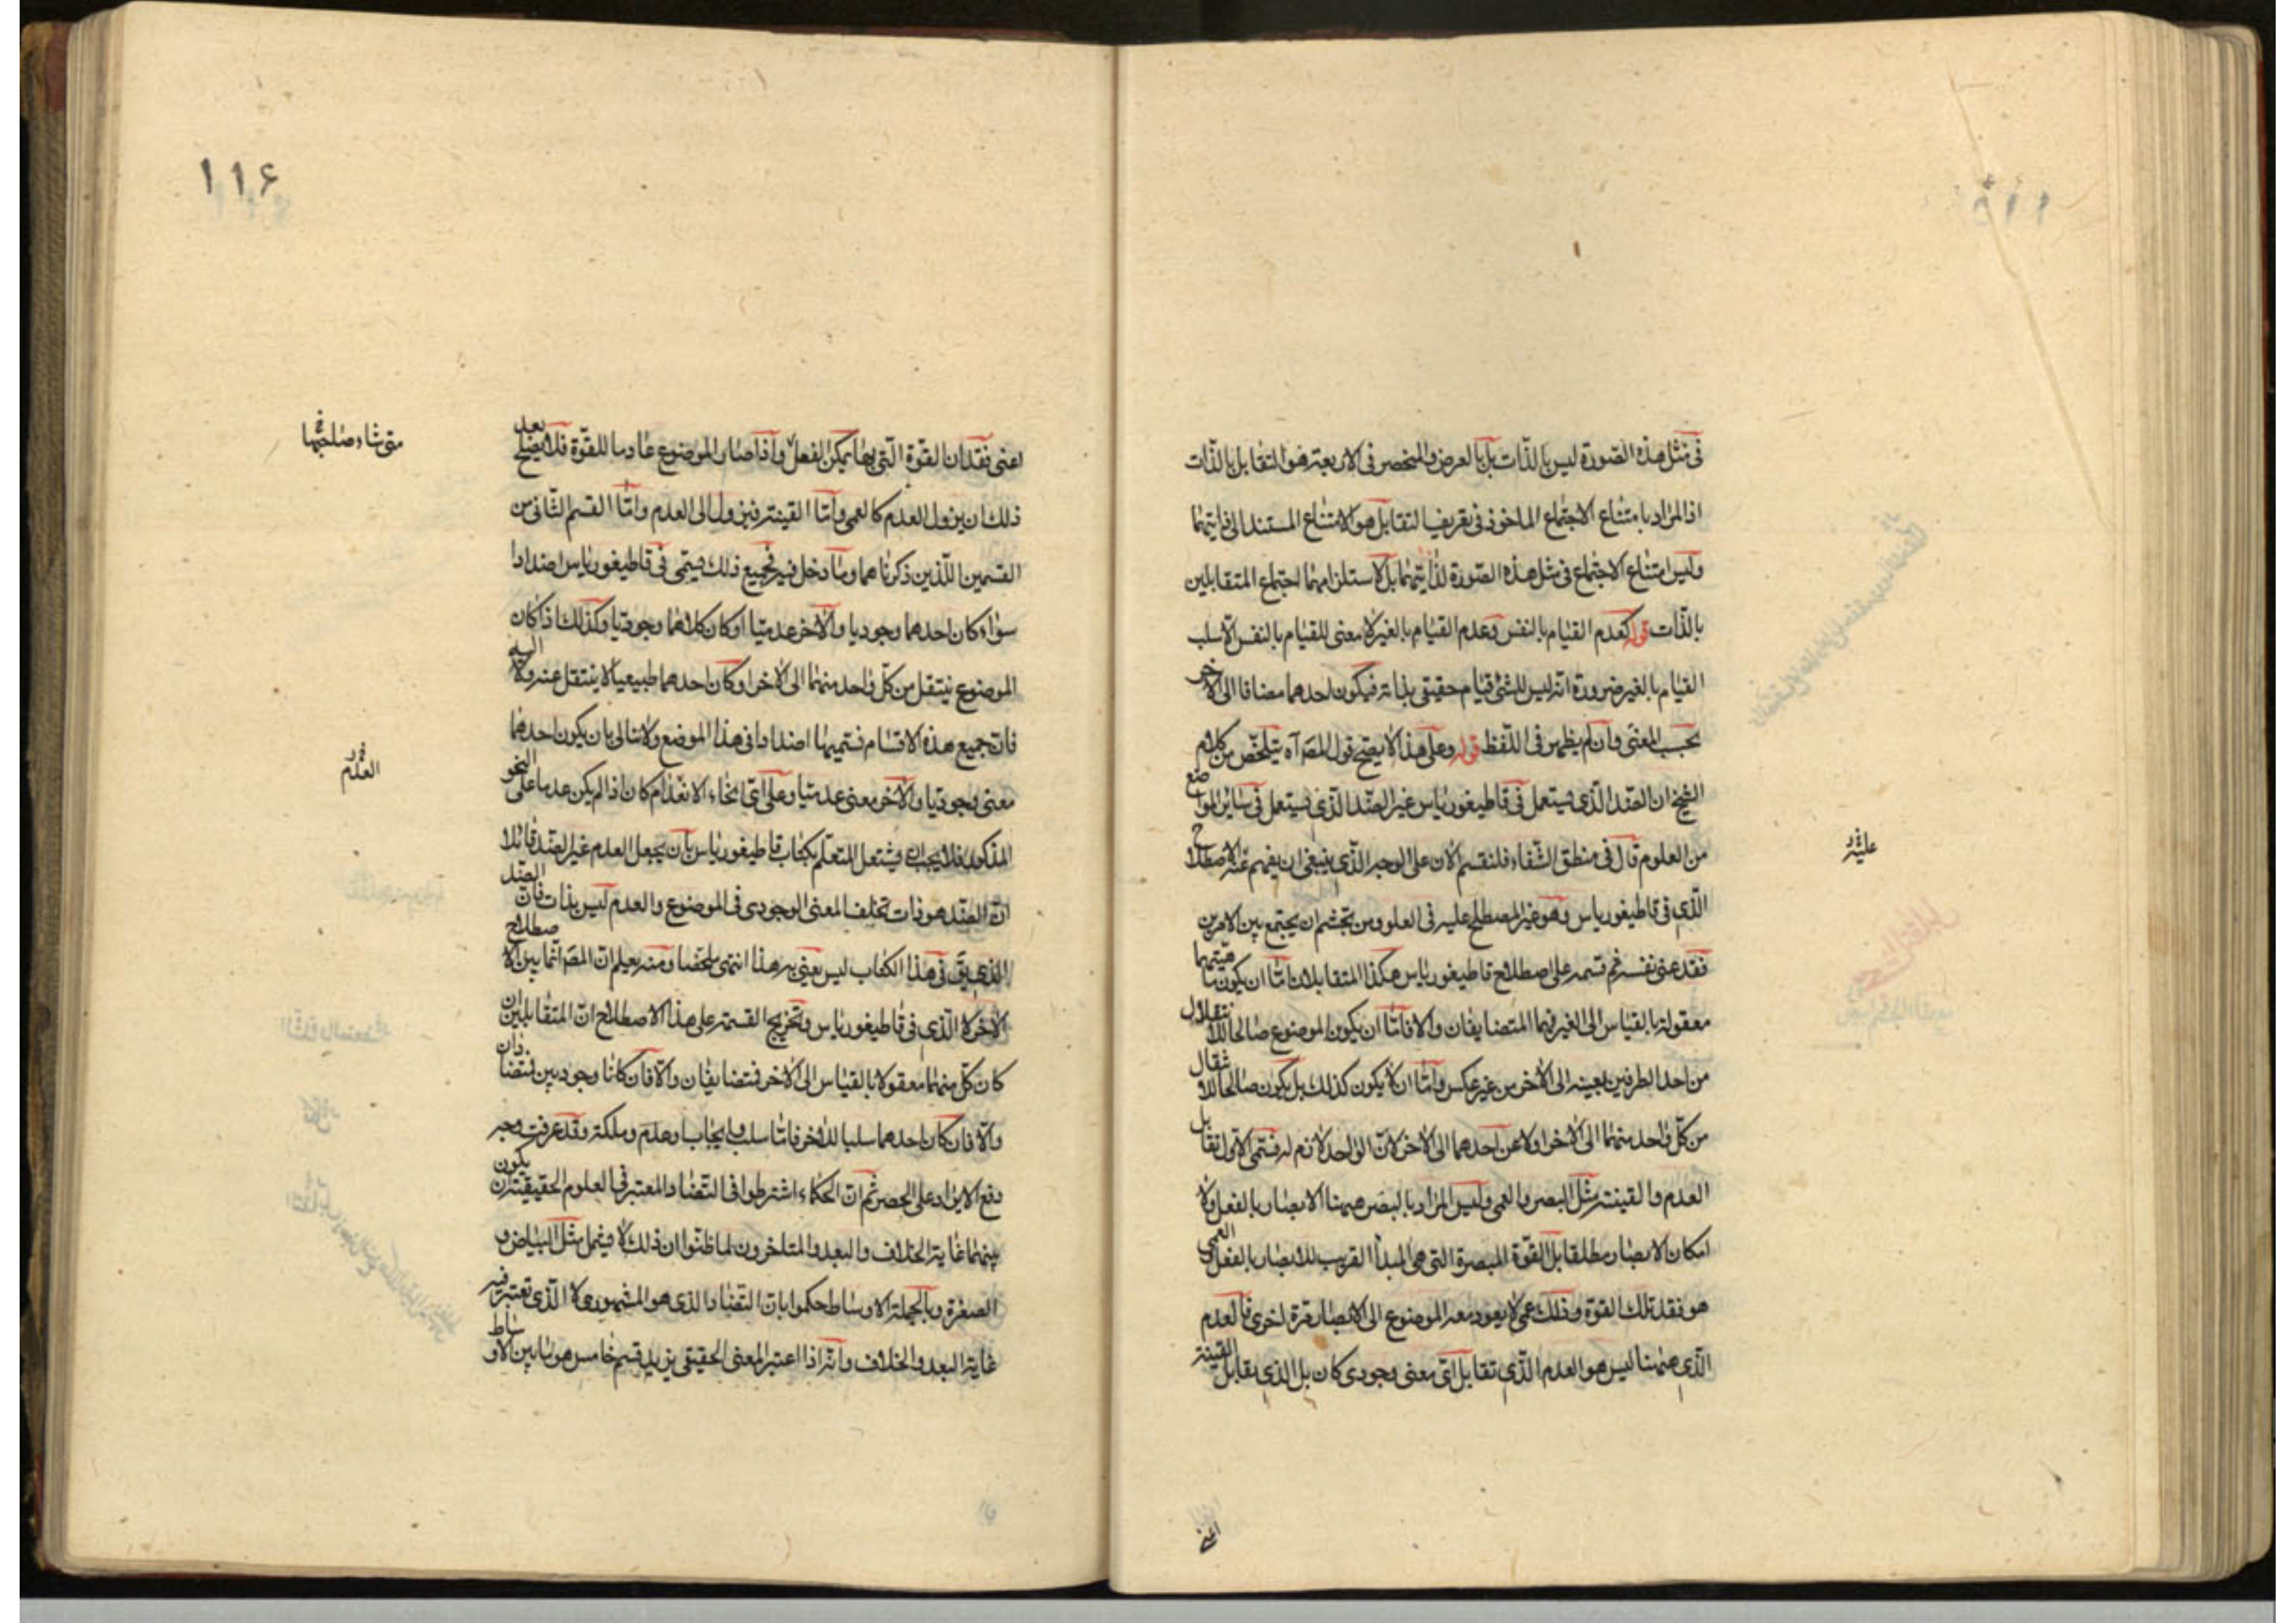 فی مثل هذه الصورة لیس بالذات بل بالعرض والمنحصر فی الاربعة هو التقابل بالذات
اذ المراد بامتناع الاجتماع الماخوذ فی تعریف التقابل هو الامتناع المستند الی ذاتیهما
ولیس امتناع الاجتماع فی مثل هذه الصورة لذاتیهما بل لاستلزامهما اجتماع المتقابلین
بالذات قوله کعدم القیام بالنفس وعدم القیام بالغیر لا معنی للقیام بالنفس الا سلب
القیام بالغیر ضرورة انه لیس للشئ قیام حقیقی بذاته فیکون احدهما مضافا الی الاخر
بحسب المعنی وان لم یظهر فی اللفظ قوله وعلی هذا لا یصح قول المص آه یتلخص من کلام
الشیخ ان الضد الذی یستعمل فی قاطیغوریاس غیر الضد الذی یستعمل فی سائر المواضع
من العلوم قال فی منطق الشفاء فلنقسم الان علی الوجه الذی ینبغی ان یفهم علیه الاصطلاح
الذی فی قاطیغوریاس وهو غیر المصطلح علیه فی العلوم ومن تجشم ان یجتمع بین الامرین
فقد عنی نفسه ثم قسمه علی اصطلاح قاطیغوریاس هکذا المتقابلان اما ان یکون ماهیتهما
معقولة بالقیاس الی الغیر فهما المتضایفان والا فاما ان یکون الموضوع صالحا للانتقال
من احد الطرفین بعینه الی الاخر من غیر عکس واما ان لا یکون کذلک بل یکون صالحا للانتقال
من کل واحد منهما الی الاخر او لا عن احدهما الی الاخر لان الواحد لازم له فسمی الاول تقابل
العدم والقینة مثل البصر والعمی ولیس المراد بالبصر ههنا الابصار بالفعل ولا
امکان الابصار مطلقا بل القوة المبصرة التی هی المبدأ القریب للابصار بالفعل والعمی
هو فقد تلک القوة وذلک عمی لا یعود معه الموضوع الی الابصار مرة اخری فالعدم
الذی ههنا لیس هو العدم الذی تقابل ای معنی وجودی کان بل الذی یقابل القینة
اعنی
۱۱۶
اعنی فقدان القوة التی بها یمکن الفعل واذا صار الموضوع عادما للقوة فلا یصلح بعد
ذلک ان یزول العدم کالعمی واما القینة فیزول الی العدم واما القسم الثانی من
القسمین اللذین ذکرناهما وما دخل فیه فجمیع ذلک یسمی فی قاطیغوریاس اضدادا
سواء کان احدهما وجودیا والاخر عدمیا او کان کلاهما وجودیا وکذلک اذ کان
الموضوع ینتقل من کل واحد منهما الی الاخر او کان احدهما طبیعیا لا ینتقل عنه ولا الیه
فان جمیع هذه الاقسام نسمیها اضدادا فی هذا الموضع ولا نبالی بان یکون احدهما
معنی وجودیا والاخر معنی عدمیا وعلی ای انحاء الانعدام کان اذ لم یکن عدما علی النحو
المذکور فلا یجب ان یشتعل المتعلم بکتاب قاطیغوریاس بان یجعل العدم غیر الضد قائلا
ان الضد هو ذات تخلف المعنی الوجودی فی الموضوع والعدم لیس بذات فان الضد
الذی یق فی هذا الکتاب لیس یعنی به هذا انتهی ملخصا ومنه یعلم ان المص انما بین الاصطلاح
الاخر لا الذی فی قاطیغوریاس وتخریج القسمة علی هذا الاصطلاح ان المتقابلین ان
کان کل منهما معقولا بالقیاس الی الاخر فمتضایفان والا فان کانا وجودیین فمتضادان
والا فان کان احدهما سلبا للاخر فاما سلب وایجاب او عدم وملکة وقد عرفت وجه
دفع الایراد علی الحصر ثم ان الحکماء اشترطوا فی التضاد المعتبر فی العلوم الحقیقیة ان یکون
بینهما غایة الخلاف والبعد والمتاخرون لما ظنوا ان ذلک لا یشمل مثل البیاض و
الصفرة وبالجملة الاوساط حکموا بان التضاد الذی هو المشهوری لا الذی تعتبر فیه
غایة البعد والخلاف وانه اذا اعتبر المعنی الحقیقی یزید قسم خامس هو ما بین الاوساط